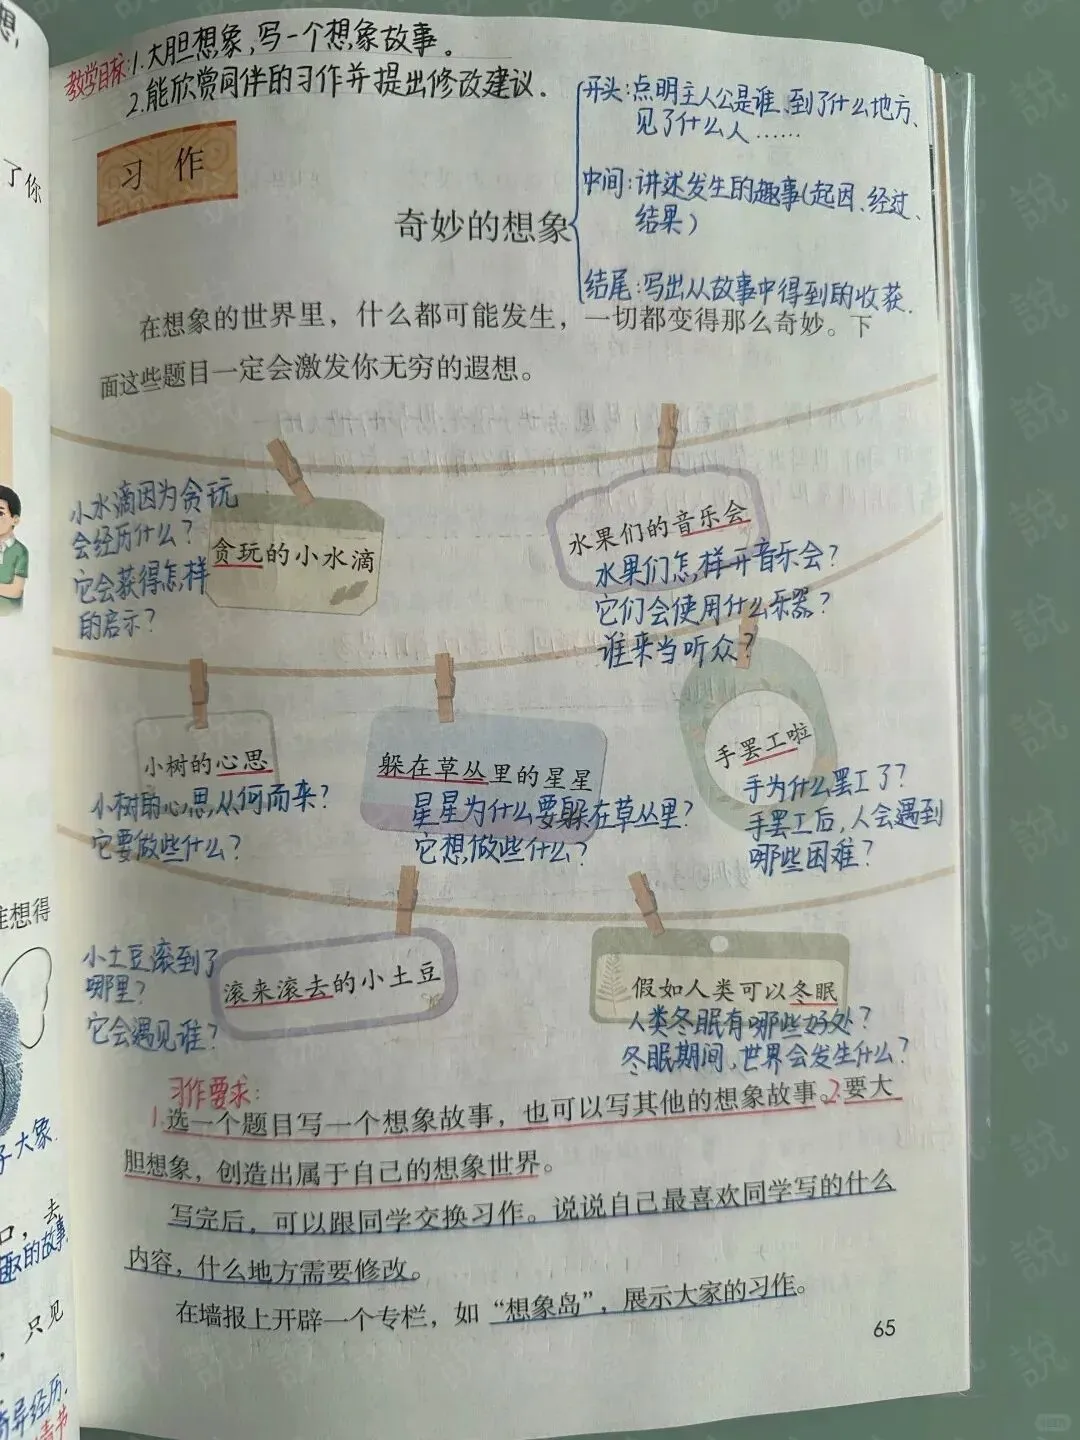 教学目标:1.大胆想象,写一个想象故事。
2.能欣赏同伴的习作并提出修改建议.
开头:点明主人公是谁、到了什么地方、
见了什么人……
习 作
中间:讲述发生的趣事(起因、经过、
结果)
奇妙的想象
结尾:写出从故事中得到的收获.
在想象的世界里，什么都可能发生，一切都变得那么奇妙。下
面这些题目一定会激发你无穷的遐想。
小水滴因为贪玩
会经历什么?
它会获得怎样
的启示?
贪玩的小水滴
水果们的音乐会
水果们怎样开音乐会?
它们会使用什么乐器?
谁来当听众?
小树的心思
小树的心思从何而来?
它要做些什么?
躲在草丛里的星星
星星为什么要躲在草丛里?
它想做些什么?
手罢工啦
手为什么罢工了?
手罢工后,人会遇到
哪些困难?
小土豆滚到了
哪里?
它会遇见谁?
滚来滚去的小土豆
假如人类可以冬眠
人类冬眠有哪些好处?
冬眠期间,世界会发生什么?
习作要求:
1.选一个题目写一个想象故事，也可以写其他的想象故事。2.要大
胆想象，创造出属于自己的想象世界。
写完后，可以跟同学交换习作。说说自己最喜欢同学写的什么
内容，什么地方需要修改。
在墙报上开辟一个专栏，如“想象岛”，展示大家的习作。
65
了你
想得
子大象.
口，去
趣的故事.
，只见
奇异经历.
說